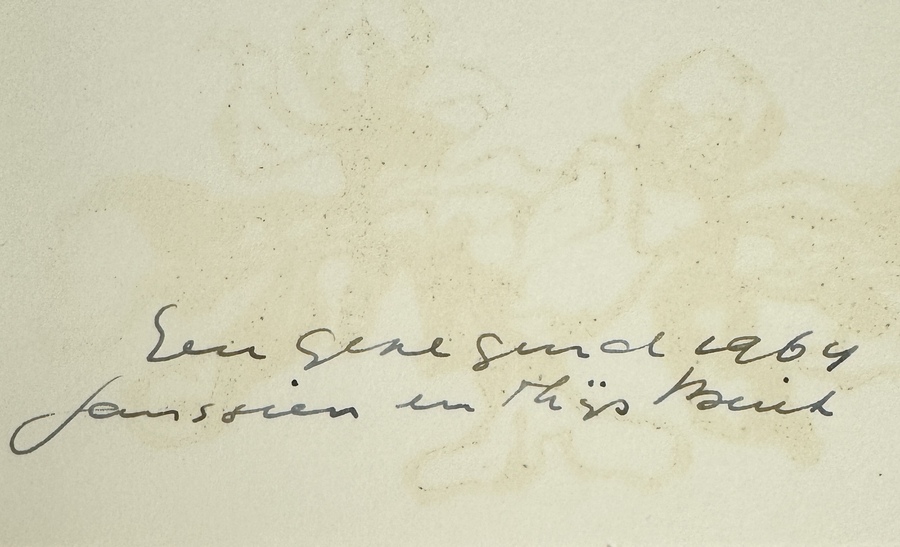 Een gene gend 1964
Janssien en Thijs Buit